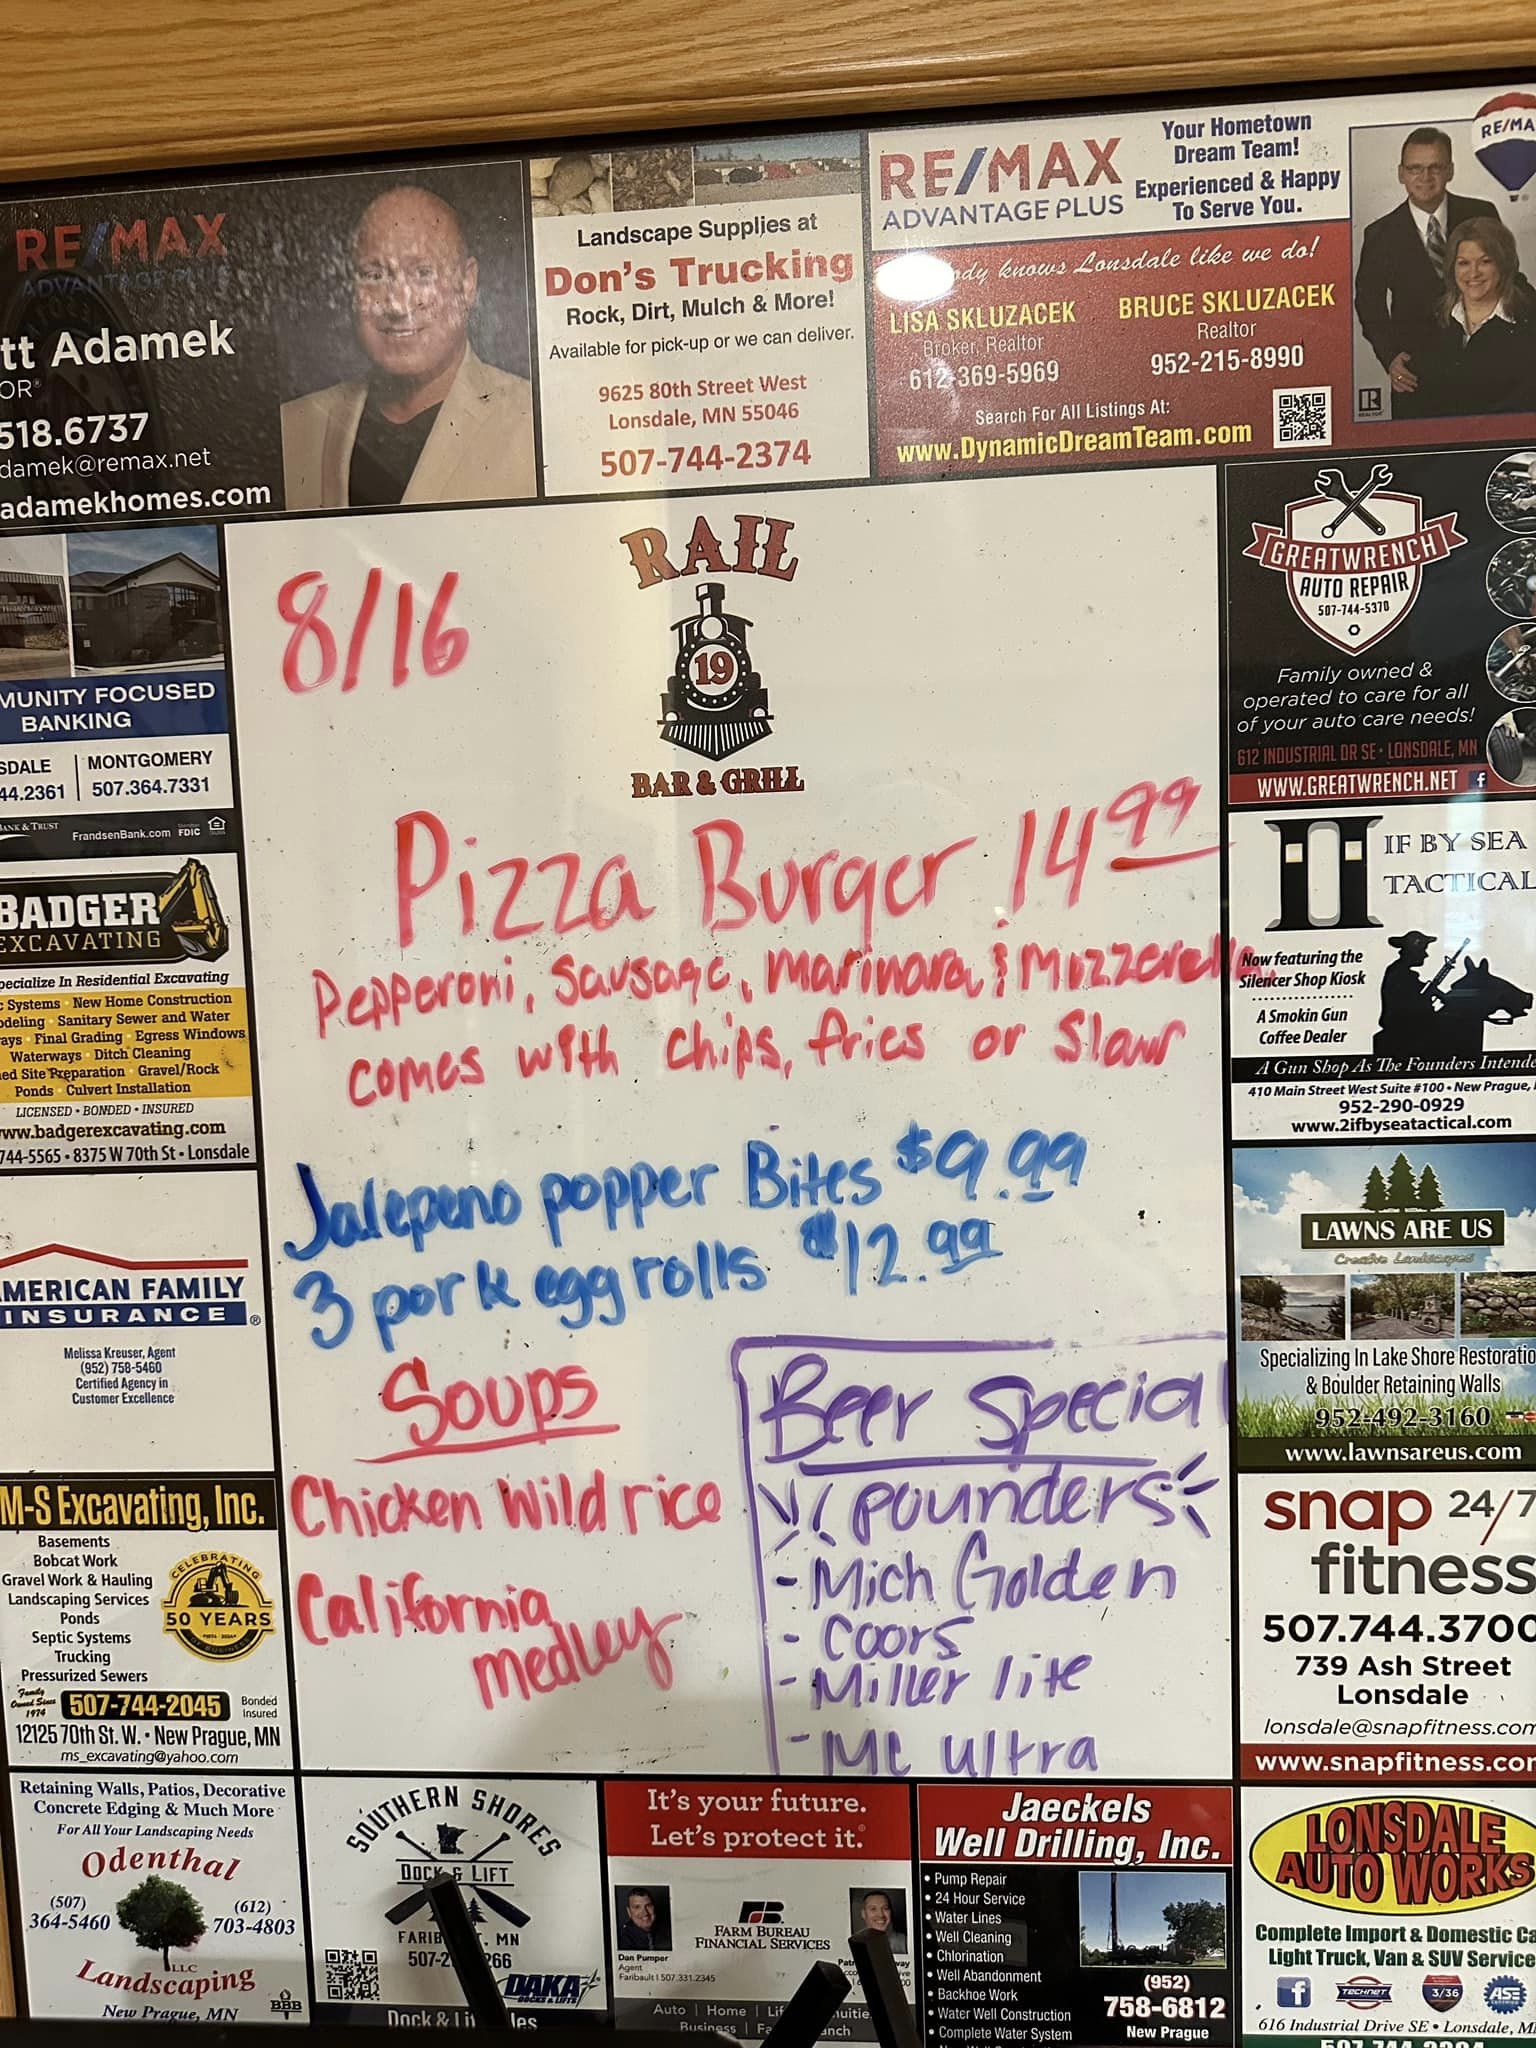 RE/MAX
ADVANTAGE PLUS
tt Adamek
OR®
518.6737
damek@remax.net
adamekhomes.com
Landscape Supplies at
Don's Trucking
Rock, Dirt, Mulch & More!
Available for pick-up or we can deliver.
9625 80th Street West
Lonsdale, MN 55046
507-744-2374
RE/MAX
ADVANTAGE PLUS
Your Hometown
Dream Team!
Experienced & Happy
To Serve You.
RE/MA
ody knows Lonsdale like we do!
LISA SKLUZACEK
Broker, Realtor
612-369-5969
BRUCE SKLUZACEK
Realtor
952-215-8990
Search For All Listings At:
www.DynamicDreamTeam.com
REALTOR
MUNITY FOCUSED
BANKING
SDALE
44.2361
MONTGOMERY
507.364.7331
BANK & TRUST
FrandsenBank.com
Member
FDIC
BADGER
EXCAVATING
pecialize In Residential Excavating
c Systems New Home Construction
odeling Sanitary Sewer and Water
ays Final Grading Egress Windows
Waterways Ditch Cleaning
ed Site Preparation Gravel/Rock
Ponds Culvert Installation
LICENSED • BONDED • INSURED
www.badgerexcavating.com
744-5565 • 8375 W 70th St • Lonsdale
AMERICAN FAMILY
INSURANCE ®
Melissa Kreuser, Agent
(952) 758-5460
Certified Agency in
Customer Excellence
M-S Excavating, Inc.
Basements
Bobcat Work
Gravel Work & Hauling
Landscaping Services
Ponds
Septic Systems
Trucking
Pressurized Sewers
CELEBRATING
50 YEARS
OF BUSINESS
Family
Owned Since
1974
507-744-2045
Bonded
Insured
12125 70th St. W. • New Prague, MN
ms_excavating@yahoo.com
8/16
RAIL
19
BAR & GRILL
Pizza Burger 14 99
Pepperoni, Sausage, Marinara, & Mozzerella.
comes with chips, fries or Slaw
Jalepeno popper Bites $9.99
3 pork egg rolls $12.99
Soups
Chicken Wild rice
California
medley
Beer Special
pounders
- Mich Golden
- Coors
- Miller lite
- Mc ultra
GREATWRENCH
AUTO REPAIR
507-744-5370
Family owned &
operated to care for all
of your auto care needs!
612 INDUSTRIAL DR SE • LONSDALE, MN
WWW.GREATWRENCH.NET f
IF BY SEA
TACTICAL
Now featuring the
Silencer Shop Kiosk
A Smokin Gun
Coffee Dealer
A Gun Shop As The Founders Intende
410 Main Street West Suite #100 • New Prague,
952-290-0929
www.2ifbyseatactical.com
LAWNS ARE US
Creative Landscapes
Specializing In Lake Shore Restoratio
& Boulder Retaining Walls
952-492-3160
www.lawnsareus.com
snap 24/7
fitness
507.744.3700
739 Ash Street
Lonsdale
lonsdale@snapfitness.com
www.snapfitness.com
Retaining Walls, Patios, Decorative
Concrete Edging & Much More
For All Your Landscaping Needs
Odenthal
(507)
364-5460
(612)
703-4803
LLC
Landscaping
New Prague, MN
BBB
SOUTHERN SHORES
DOCK & LIFT
FARIB T, MN
507-2 266
DAKA
DOCKS & LIFTS
Dock & Li les
It's your future.
Let's protect it.
Dan Pumper
Agent
Faribault | 507.331.2345
FARM BUREAU
FINANCIAL SERVICES
Auto | Home | Lif
Business | Fa nch
Jaeckels
Well Drilling, Inc.
• Pump Repair
• 24 Hour Service
• Water Lines
• Well Cleaning
• Chlorination
• Well Abandonment
• Backhoe Work
• Water Well Construction
• Complete Water System
(952)
758-6812
New Prague
LONSDALE
AUTO WORKS
Complete Import & Domestic Ca
Light Truck, Van & SUV Service
f
TECHNET
3/36
ASE
616 Industrial Drive SE • Lonsdale, M